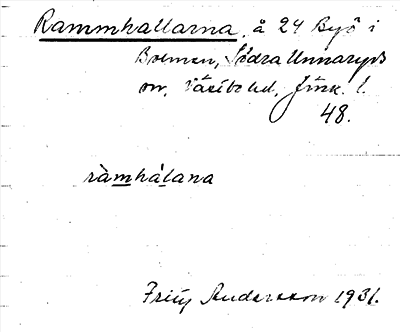 Rammhallarna, å 24 Byö i
Bolmen, Södra Unnaryds
sn, Västbo hd, Jönk. l.
48.
ràmhálana
Frity Andersson 1931.